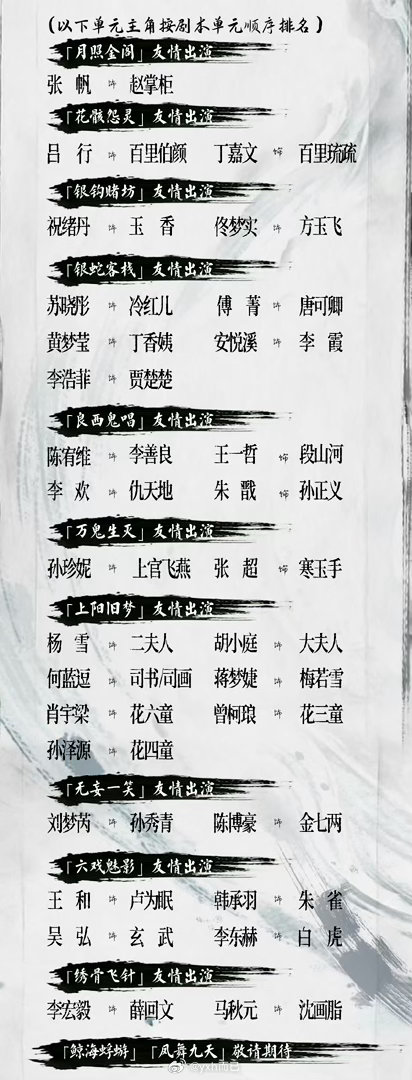 （以下单元主角按剧本单元顺序排名）
「月照金阁」友情出演
张 帆 饰 赵掌柜
「花骸怨灵」友情出演
吕 行 饰 百里伯颜 丁嘉文 饰 百里琉疏
「银钩赌坊」友情出演
祝绪丹 饰 玉 香 佟梦实 饰 方玉飞
「银蛇客栈」友情出演
苏晓彤 饰 冷红儿 傅 菁 饰 唐可卿
黄梦莹 饰 丁香姨 安悦溪 饰 李 霞
李浩菲 饰 贾楚楚
「良西鬼唱」友情出演
陈宥维 饰 李善良 王一哲 饰 段山河
李 欢 饰 仇天地 朱 戬 饰 孙正义
「万鬼生灭」友情出演
孙珍妮 饰 上官飞燕 张 超 饰 寒玉手
「上阳旧梦」友情出演
杨 雪 饰 二夫人 胡小庭 饰 大夫人
何蓝逗 饰 司书/司画 蒋梦婕 饰 梅若雪
肖宇梁 饰 花六童 曾柯琅 饰 花三童
孙泽源 饰 花四童
「无妄一笑」友情出演
刘梦芮 饰 孙秀青 陈博豪 饰 金七两
「六戏魅影」友情出演
王 和 饰 卢为眠 韩承羽 饰 朱 雀
吴 弘 饰 玄 武 李东赫 饰 白 虎
「绣骨飞针」友情出演
李宏毅 饰 薛回文 马秋元 饰 沈画脂
「鲸海蜉蝣」「凤舞九天」敬请期待